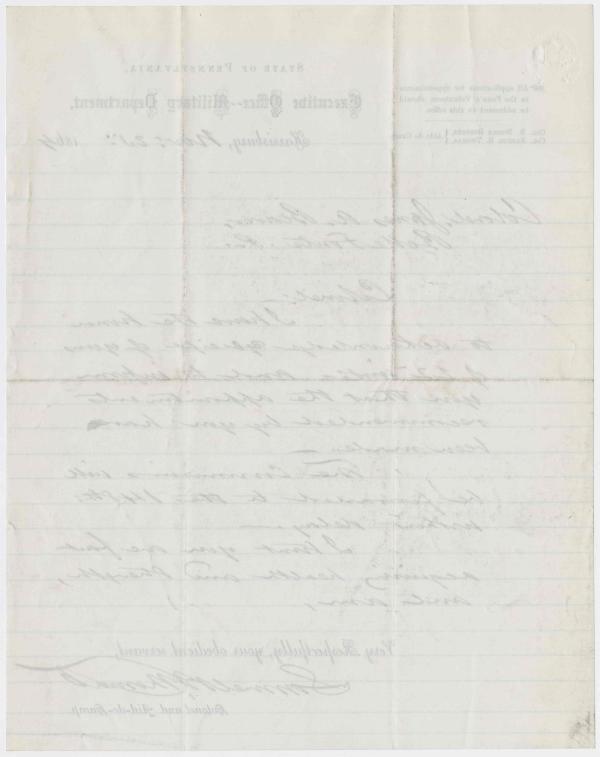 STATE OF PENNSYLVANIA,
Executive Office--Military Department,
Harrisburg, Nov: 25th 1864
All applications for appointments
in the Penn'a Volunteers, should
be addressed to this office.
Colonel James A. Beaver,
Bellefonte, Pa.
Colonel:
I have the honor
to acknowledge receipt of your
of 22 and to inform
you that the appointments
recommended by you have
been made.
The Commissions will
be forwarded to the 148th
without delay.
I trust you are fast
acquiring health and strength,
and am,
Very Respectfully, your obedient servant,
Colonel and Aid-de-Camp